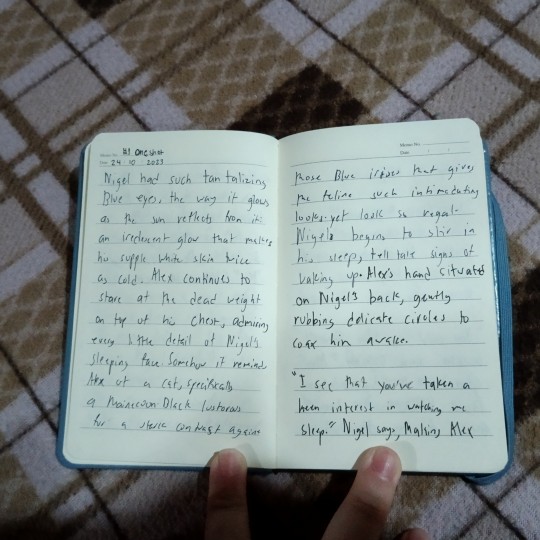 Memo No. #1 One shot
Date 24 · 10 · 2023
Nigel had such tantalizing
Blue eyes, the way it glows
as the sun reflects from it
an iredecent glow that makes
his supple white skin twice
as cold. Alex continues to
stare at the dead weight
on top of his chest, admiring
every little detail of Nigel's
sleeping face. Somehow it reminds
Alex of a cat, specifically
a Mainecoon Black lustorous
for a contrast against
Memo No.
Date
those Blue irises that gives
the feline such intimidating
looks- yet look so regal-
Nigel begins to stir in
his sleep, tell tale signs of
waking up. Alex's hand situates
on Nigel's back, gently
rubbing delicate circles to
coax him awake.
"I see that you've taken a
keen interest in watching me
sleep." Nigel says, Making Alex